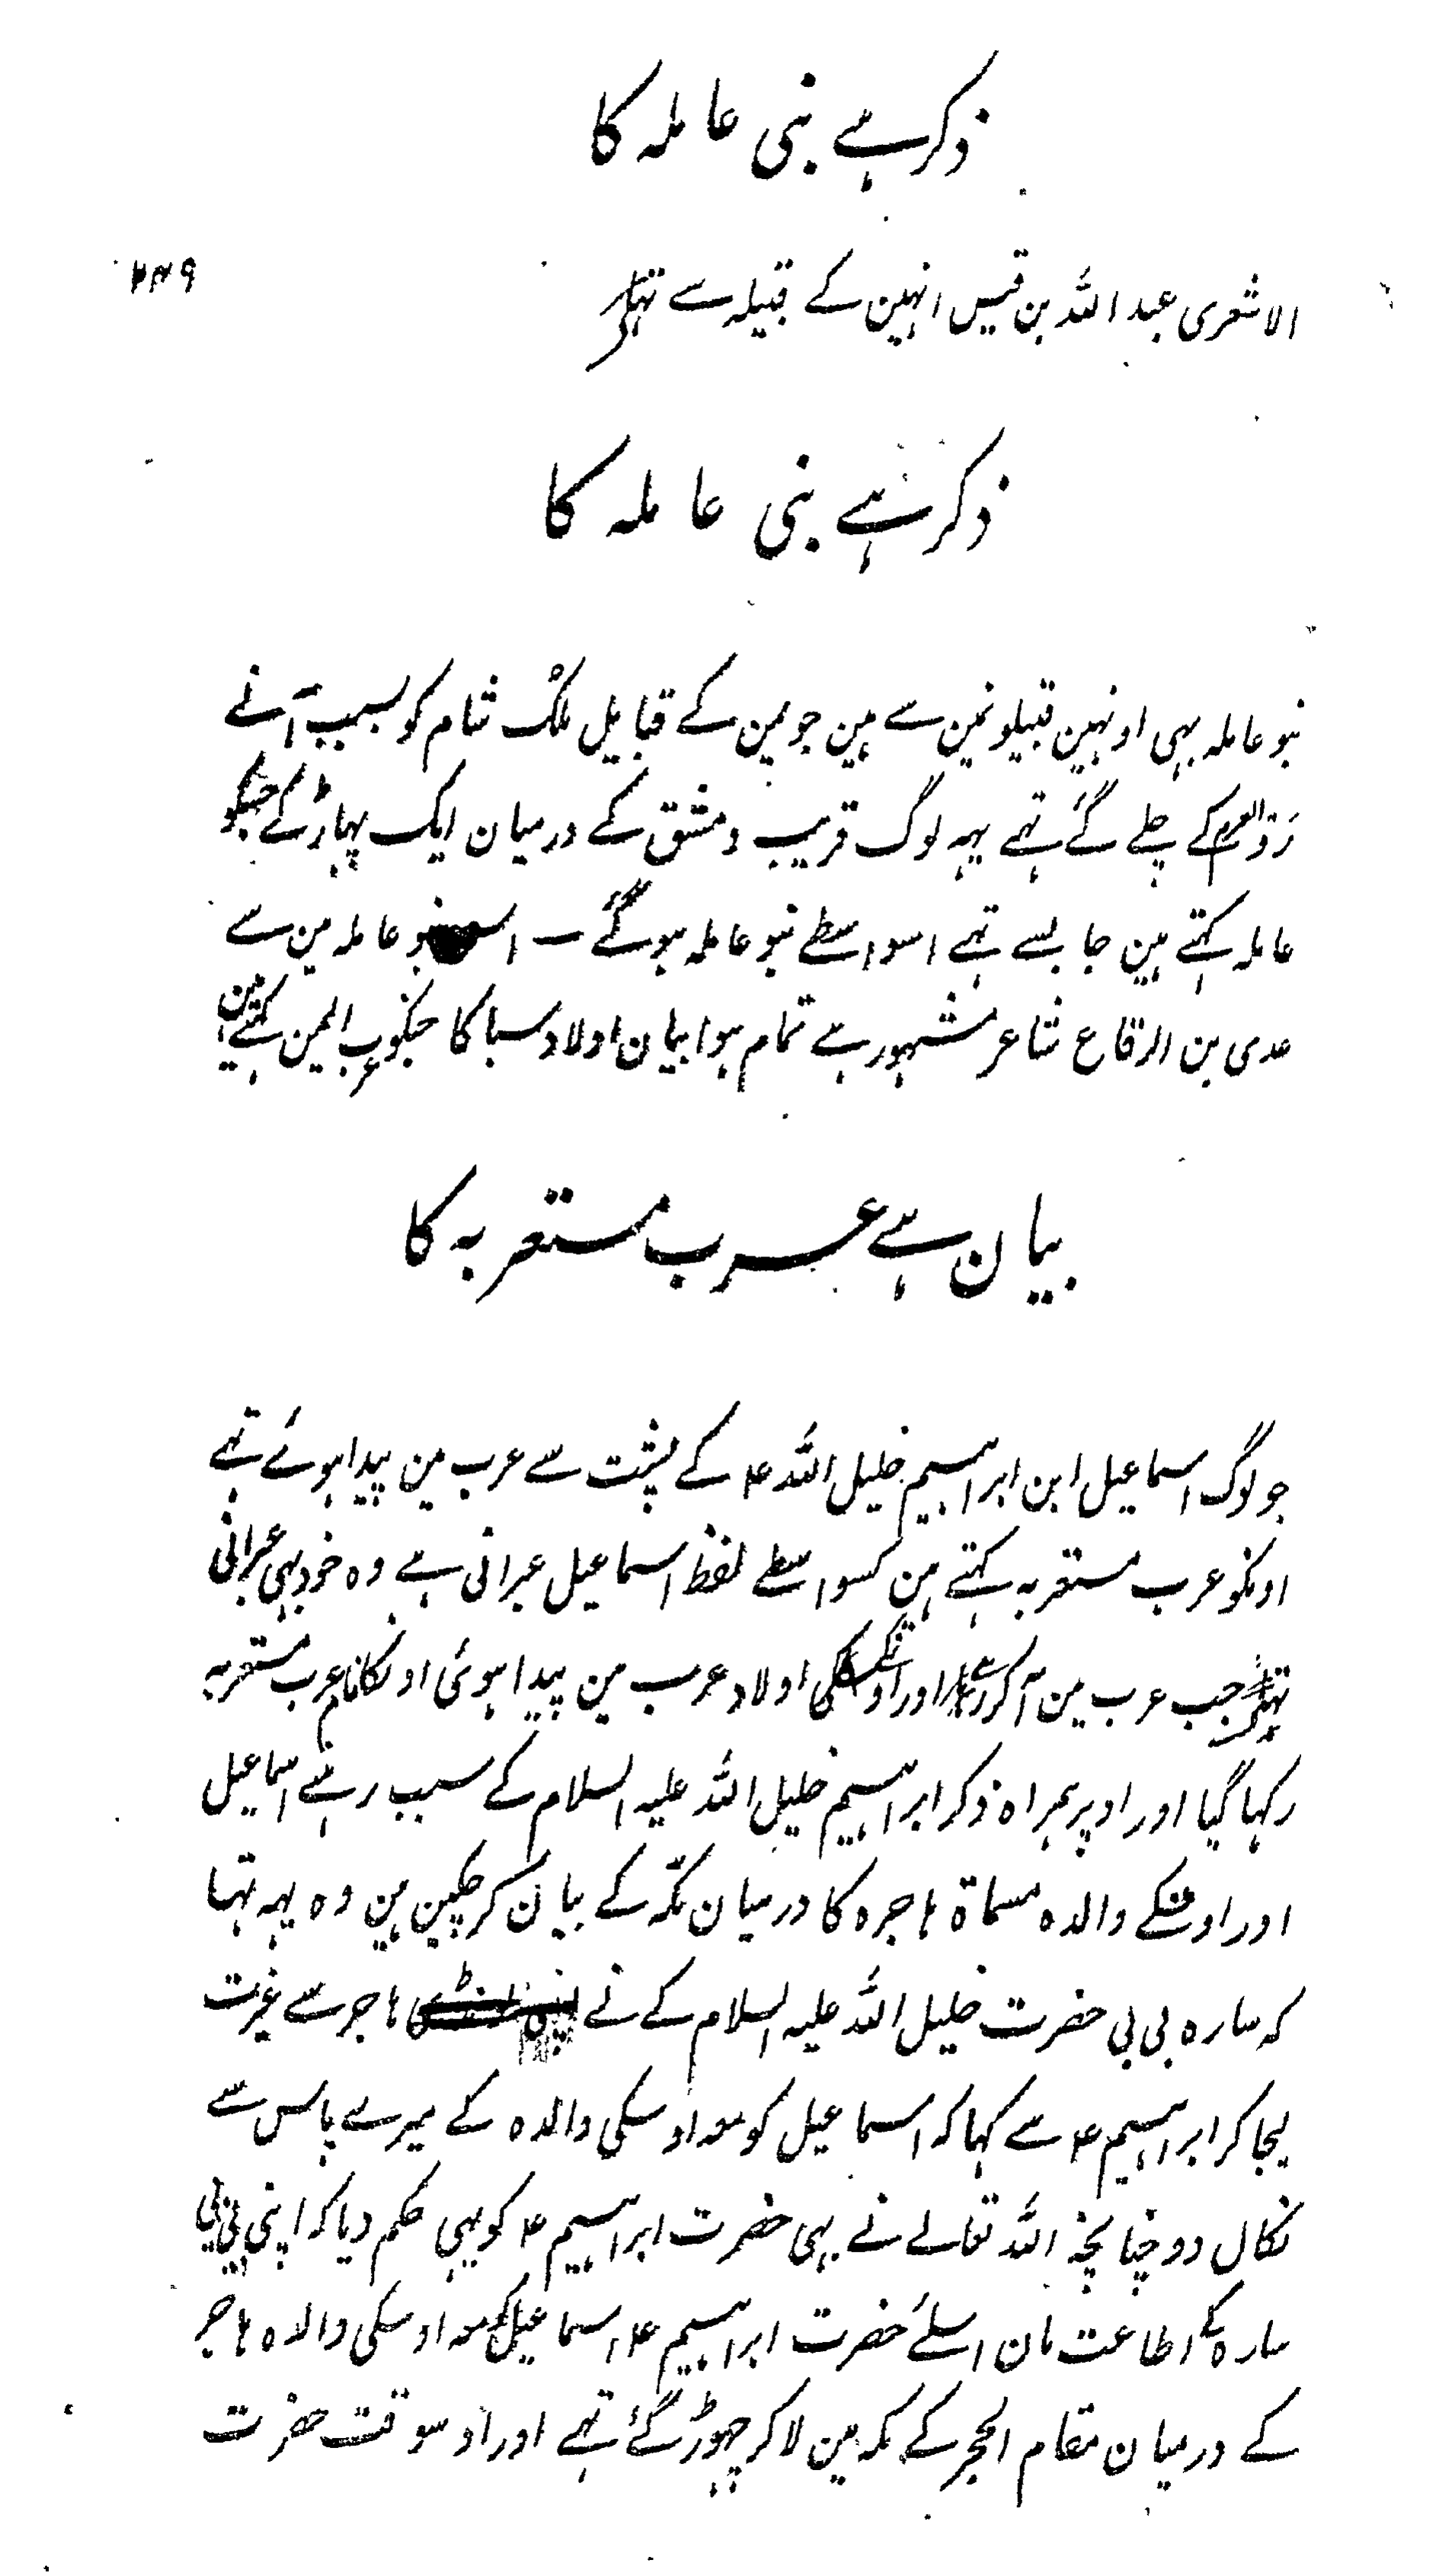 ذکر ہے بنی عاملہ کا
۲۴۹
الاشعری عبد اللہ بن قیس انہین کے قبیلہ سے تہا
ذکر ہے بنی عاملہ کا
بنو عاملہ بہی اونہین قبیلونمین سے ہین جو یمن کے قبایل ملک شام کو بسبب آنے
رَو العرم کے چلے گئے تہے یہہ لوگ قریب دمشق کے درمیان ایک پہاڑ کے جسکو
عاملہ کہتے ہین جا بسے تہے اسواسطے بنو عاملہ ہوگئے – بنو عاملہ مین سے
عدی بن الرقاع شاعر مشہور ہے تمام ہوا بیان اولاد سبا کا جنکو عرب الیمن کہتے ہین
بیان ہے عرب مستعربہ کا
جو لوگ اسماعیل ابن ابراہیم خلیل اللہ ۴ کے پشت سے عرب مین پیدا ہوئے تہے
اونکو عرب مستعربہ کہتے ہین کسواسطے لفظ اسماعیل عبرانی ہے وہ خود بہی عبرانی
تہے جب عرب مین آکر رہے اور اونکی اولاد عرب مین پیدا ہوئی اونکا نام عرب مستعربہ
رکہا گیا اور اوپر ہمراہ ذکر ابراہیم خلیل اللہ علیہ السلام کے سبب رہنے اسماعیل
اور اوسکے والدہ مسماۃ ہاجرہ کا درمیان مکّہ کے بیان کر چکین ہین وہ یہہ تہا
کہ سارہ بی بی حضرت خلیل اللہ علیہ السلام کے نے ہاجر سے غیرت
لیجا کر ابراہیم ۴ سے کہا کہ اسماعیل کو معہ اوسکی والدہ کے میرے پاس سے
نکال دو چنانچہ اللہ تعالے نے بہی حضرت ابراہیم ۴ کو یہی حکم دیا کہ اپنی بی بی
سارہ کے اطاعت مان اسلئے حضرت ابراہیم ۴ اسماعیل کو معہ اوسکی والدہ ہاجر
کے درمیان مقام الحجر کے مکہ مین لاکر چہوڑ گئے تہے اور اوسوقت حضرت